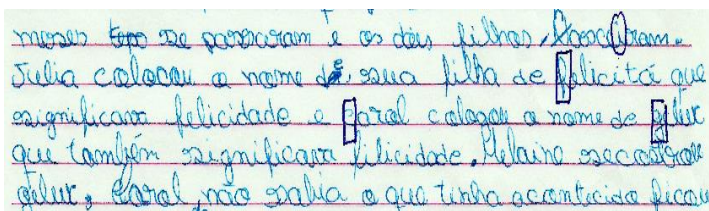 moses topo se passaram e os dois filhos, Nasciram.
Julia colocou o nome de sua filha de felicitá que
significava felicidade e Carol colocou o nome de gilur
que também significava filicidade. Melaine
gilur, Carol não sabia o que tinha acontecido ficou